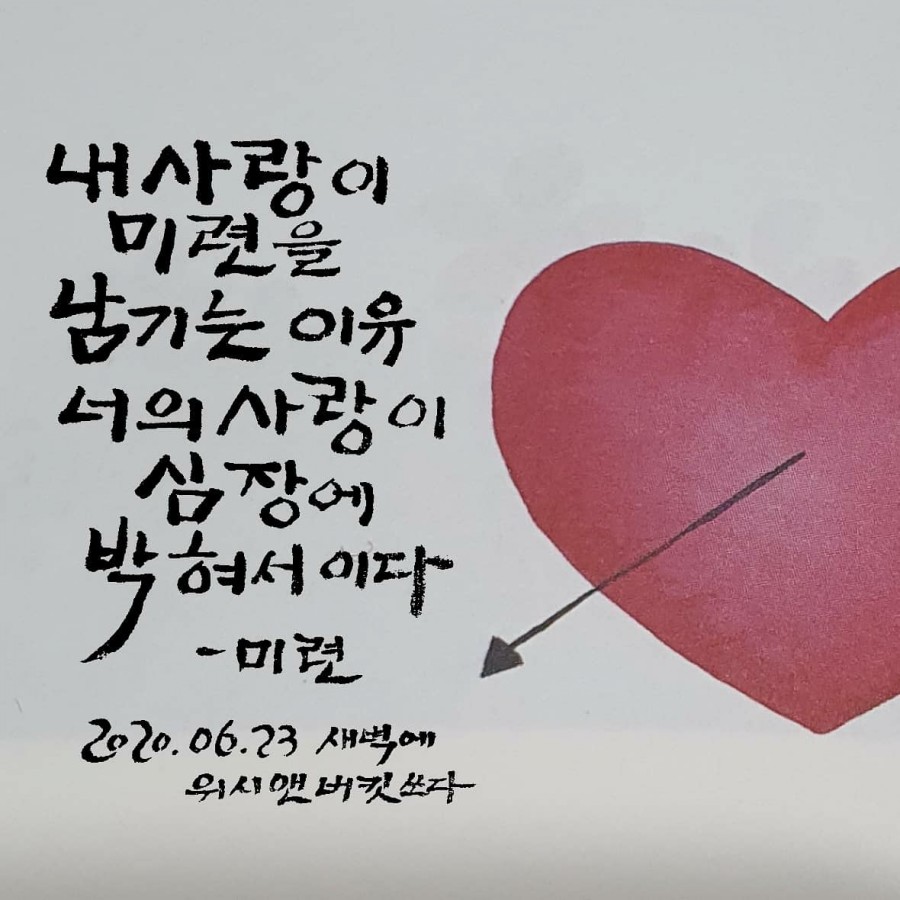 내 사랑이
미련을
남기는 이유
너의 사랑이
심장에
박혀서 이다
-미련
2020.06.23 새벽에
위시앤버킷쓰다